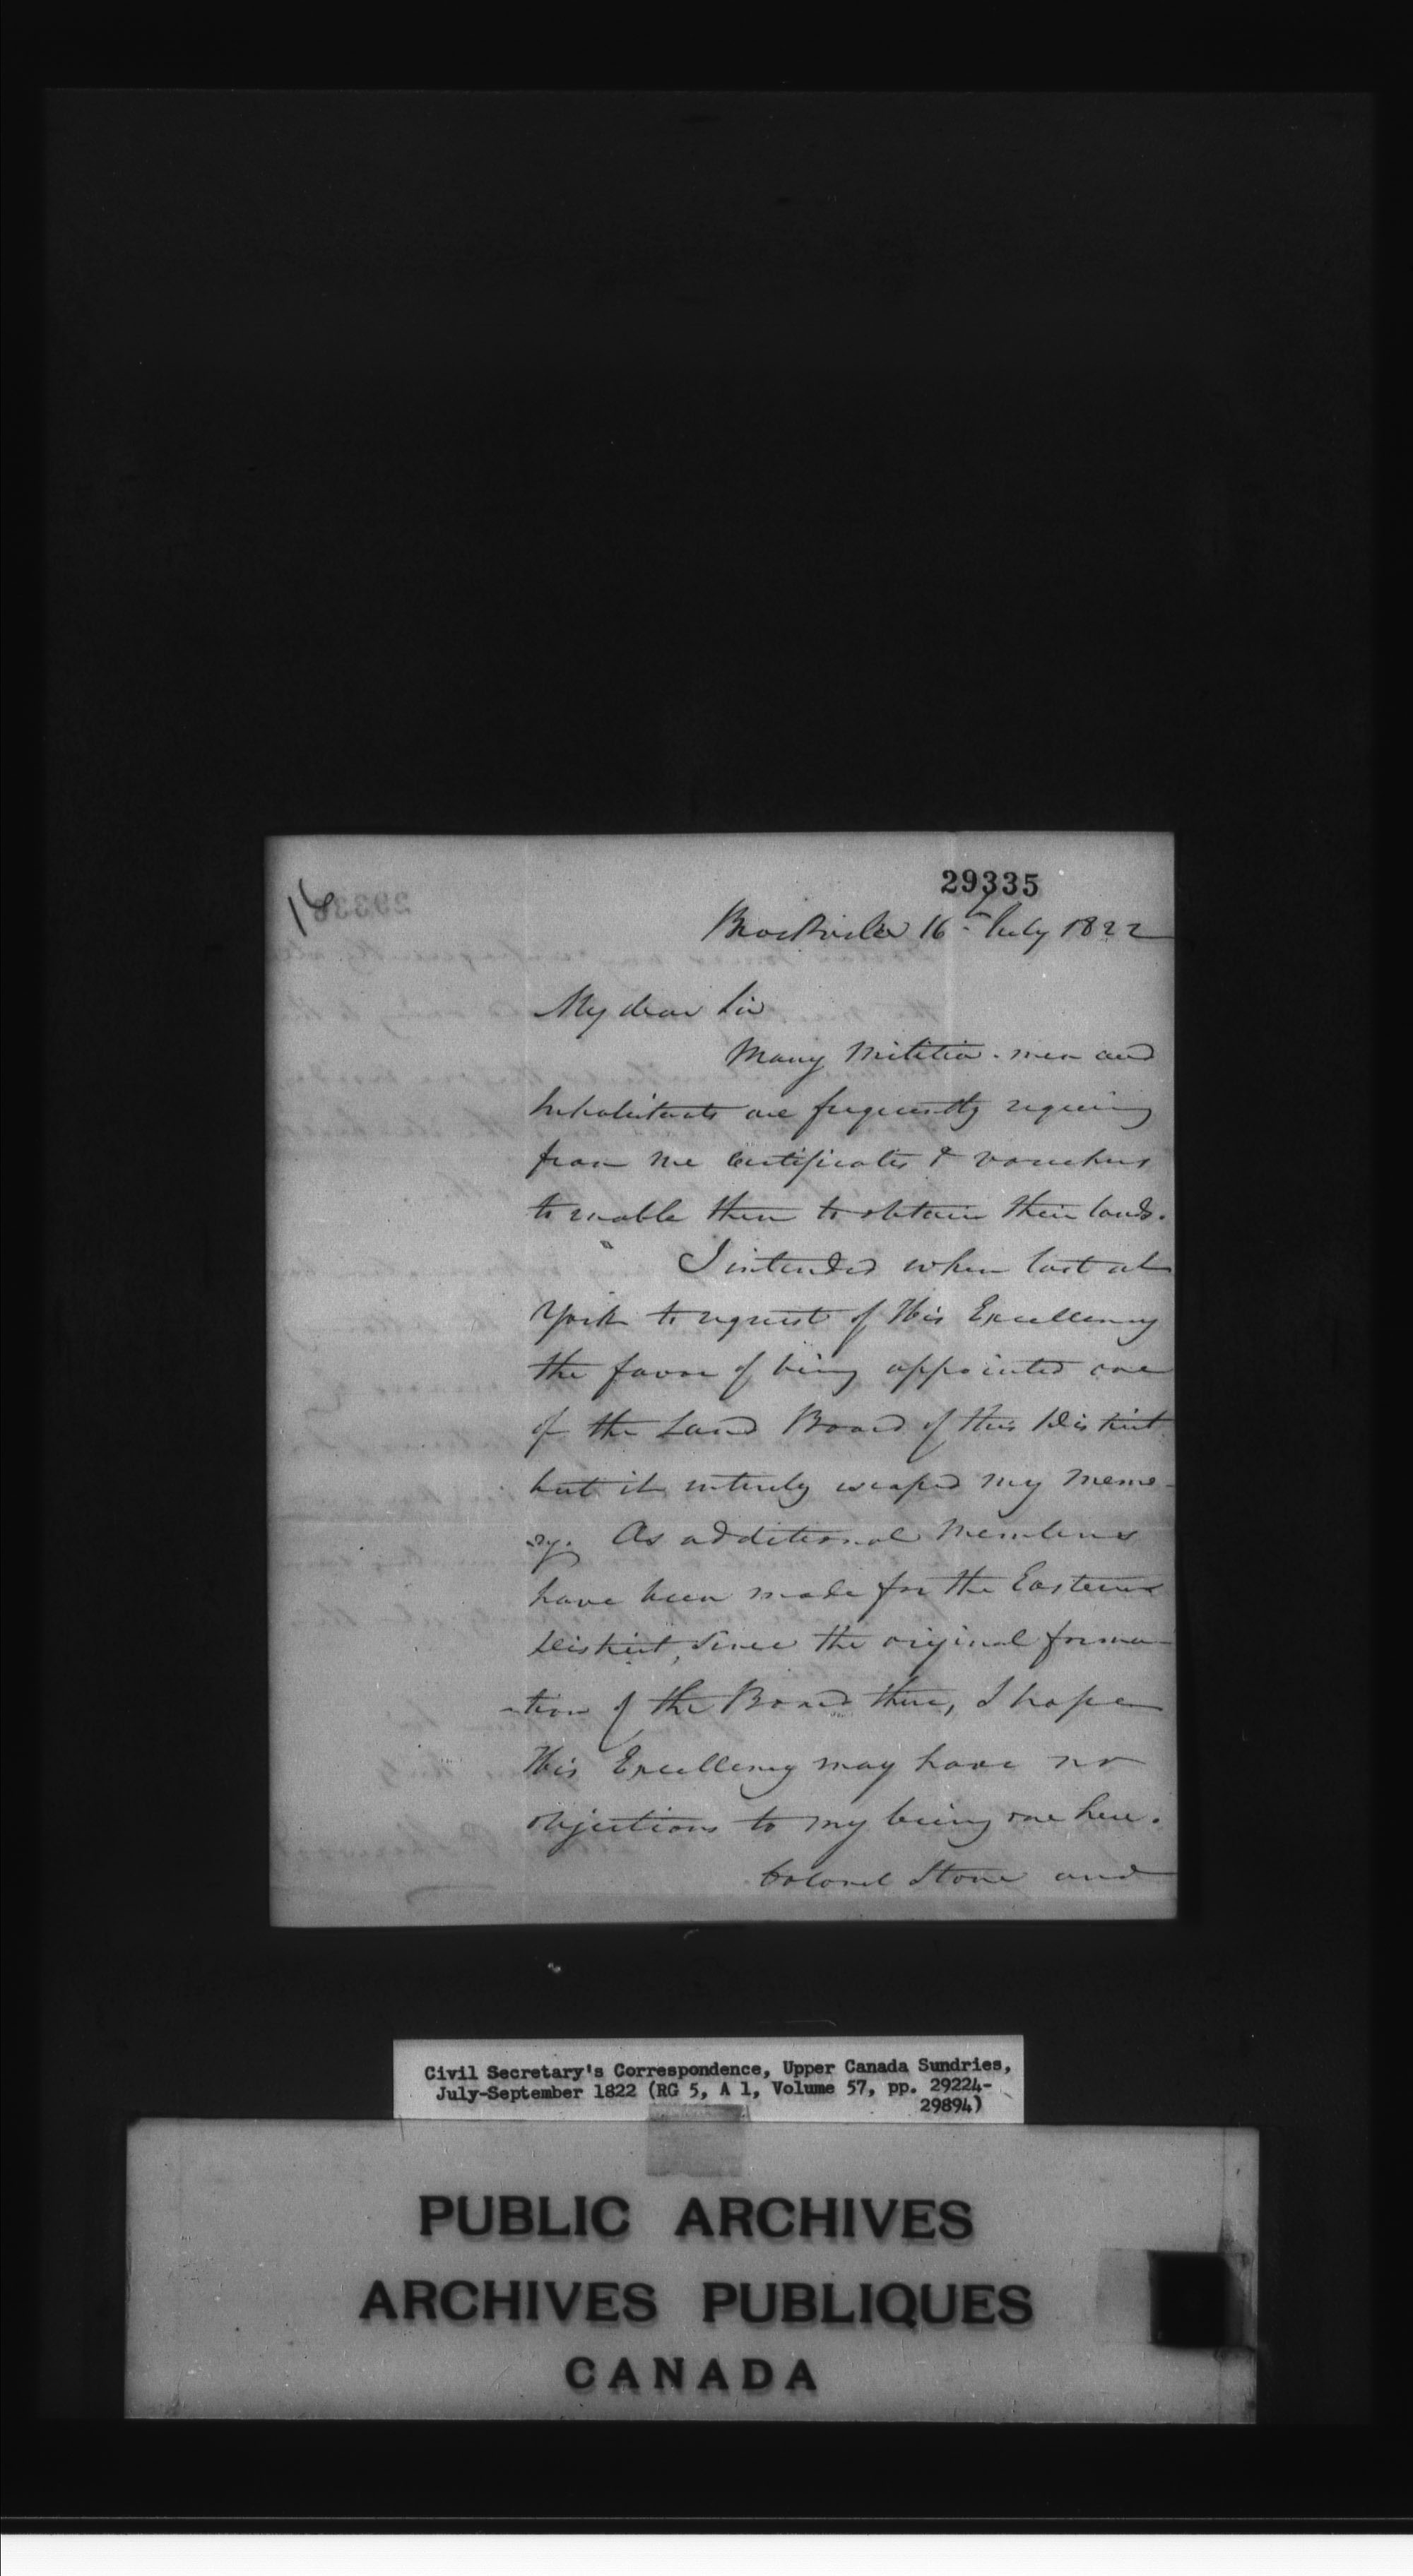 29335
16
Brockville 16th July 1822
My dear Sir
Many Militia-men and
Inhabitants are frequently requiring
from me Certificates & vouchers
to enable them to obtain their lands.
I intended when last at
York to request of His Excellency
the favor of being appointed one
of the Land Board of this District
but it entirely escaped my memo-
-ry. As additional Members
have been made for the Eastern
District, since the original forma-
-tion of the Board there, I hope
His Excellency may have no
objections to my being one here.
Colonel Stone and
Civil Secretary's Correspondence, Upper Canada Sundries,
July-September 1822 (RG 5, A 1, Volume 57, pp. 29224-
29894)
PUBLIC ARCHIVES
ARCHIVES PUBLIQUES
CANADA